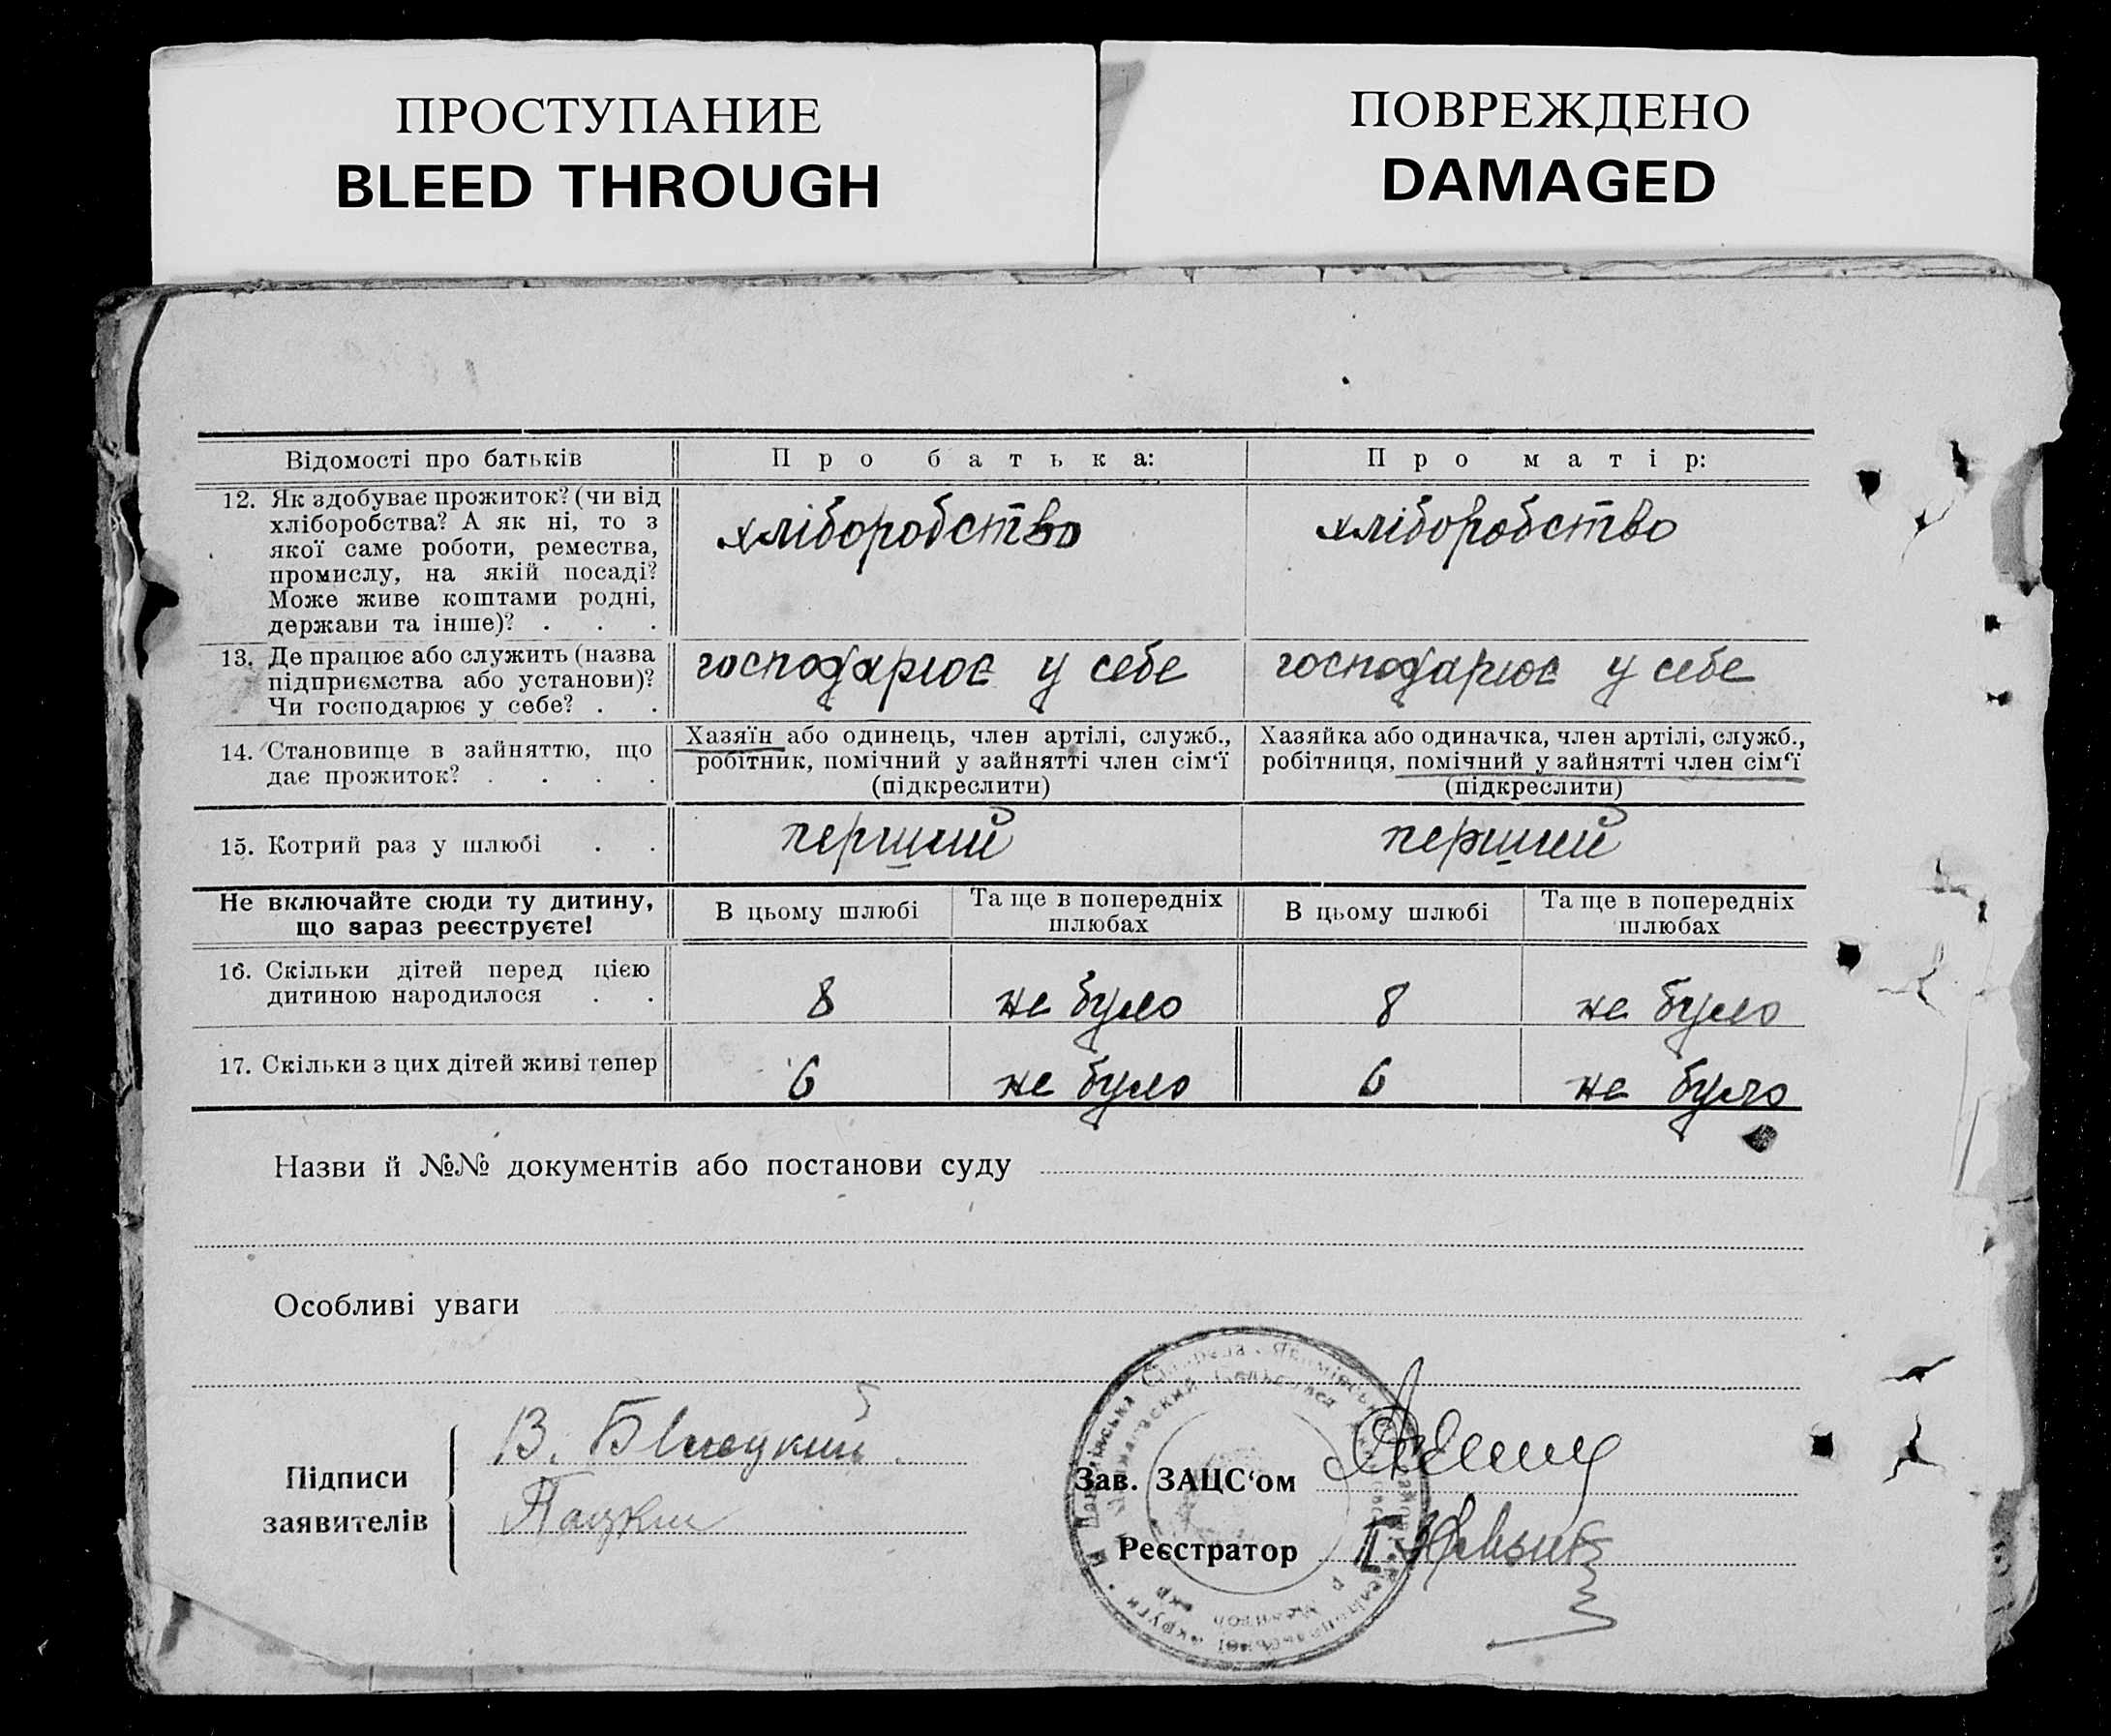 ПРОСТУПАНИЕ
BLEED THROUGH
ПОВРЕЖДЕНО
DAMAGED
Відомості про батьків
Про батька:
Про матір:
12. Як здобуває прожиток? (чи від
хліборобства? А як ні, то з
якої саме роботи, ремества,
промислу, на якій посаді?
Може живе коштами родні,
держави та інше)? . . .
хліборобство
хліборобство
13. Де працює або служить (назва
підприємства або установи)?
Чи господарює у себе? . .
господарює у себе
господарює у себе
14. Становище в зайняттю, що
дає прожиток? . . . .
Хазяїн або одинець, член артілі, служб.,
робітник, помічний у зайнятті член сім‘ї
(підкреслити)
Хазяйка або одиначка, член артілі, служб.,
робітниця, помічний у зайнятті член сім‘ї
(підкреслити)
15. Котрий раз у шлюбі . .
перший
перший
Не включайте сюди ту дитину,
що зараз реєструєте!
В цьому шлюбі
Та ще в попередніх
шлюбах
В цьому шлюбі
Та ще в попередніх
шлюбах
16. Скільки дітей перед цією
дитиною народилося . .
8
не було
8
не було
17. Скільки з цих дітей живі тепер
6
не було
6
не було
Назви й №№ документів або постанови суду
Особливі уваги
Підписи
заявителів
В.
Зав. ЗАЦС‘ом
Реєстратор